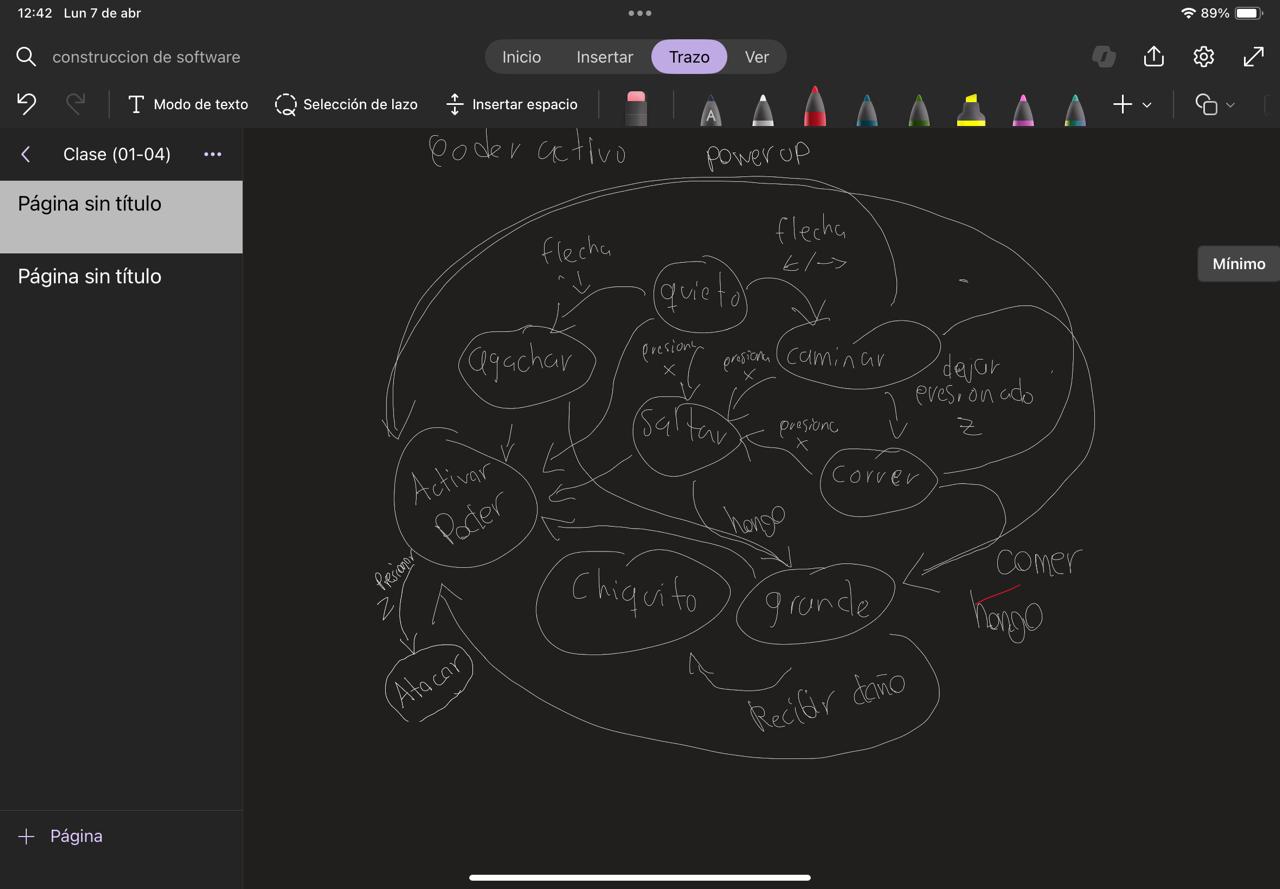 12:42 Lun 7 de abr
89%
construccion de software
Inicio Insertar Trazo Ver
Modo de texto Selección de lazo Insertar espacio
A
Clase (01-04)
Página sin título
Página sin título
Página
Mínimo
Poder activo
power up
flecha
flecha
quieto
agachar
presiona
x
presiona
x
caminar
dejar
presionado
z
saltar
presiona
x
correr
Activar
Poder
hongo
comer
hongo
Presionar
z
Chiquito
grande
Atacar
Recibir daño